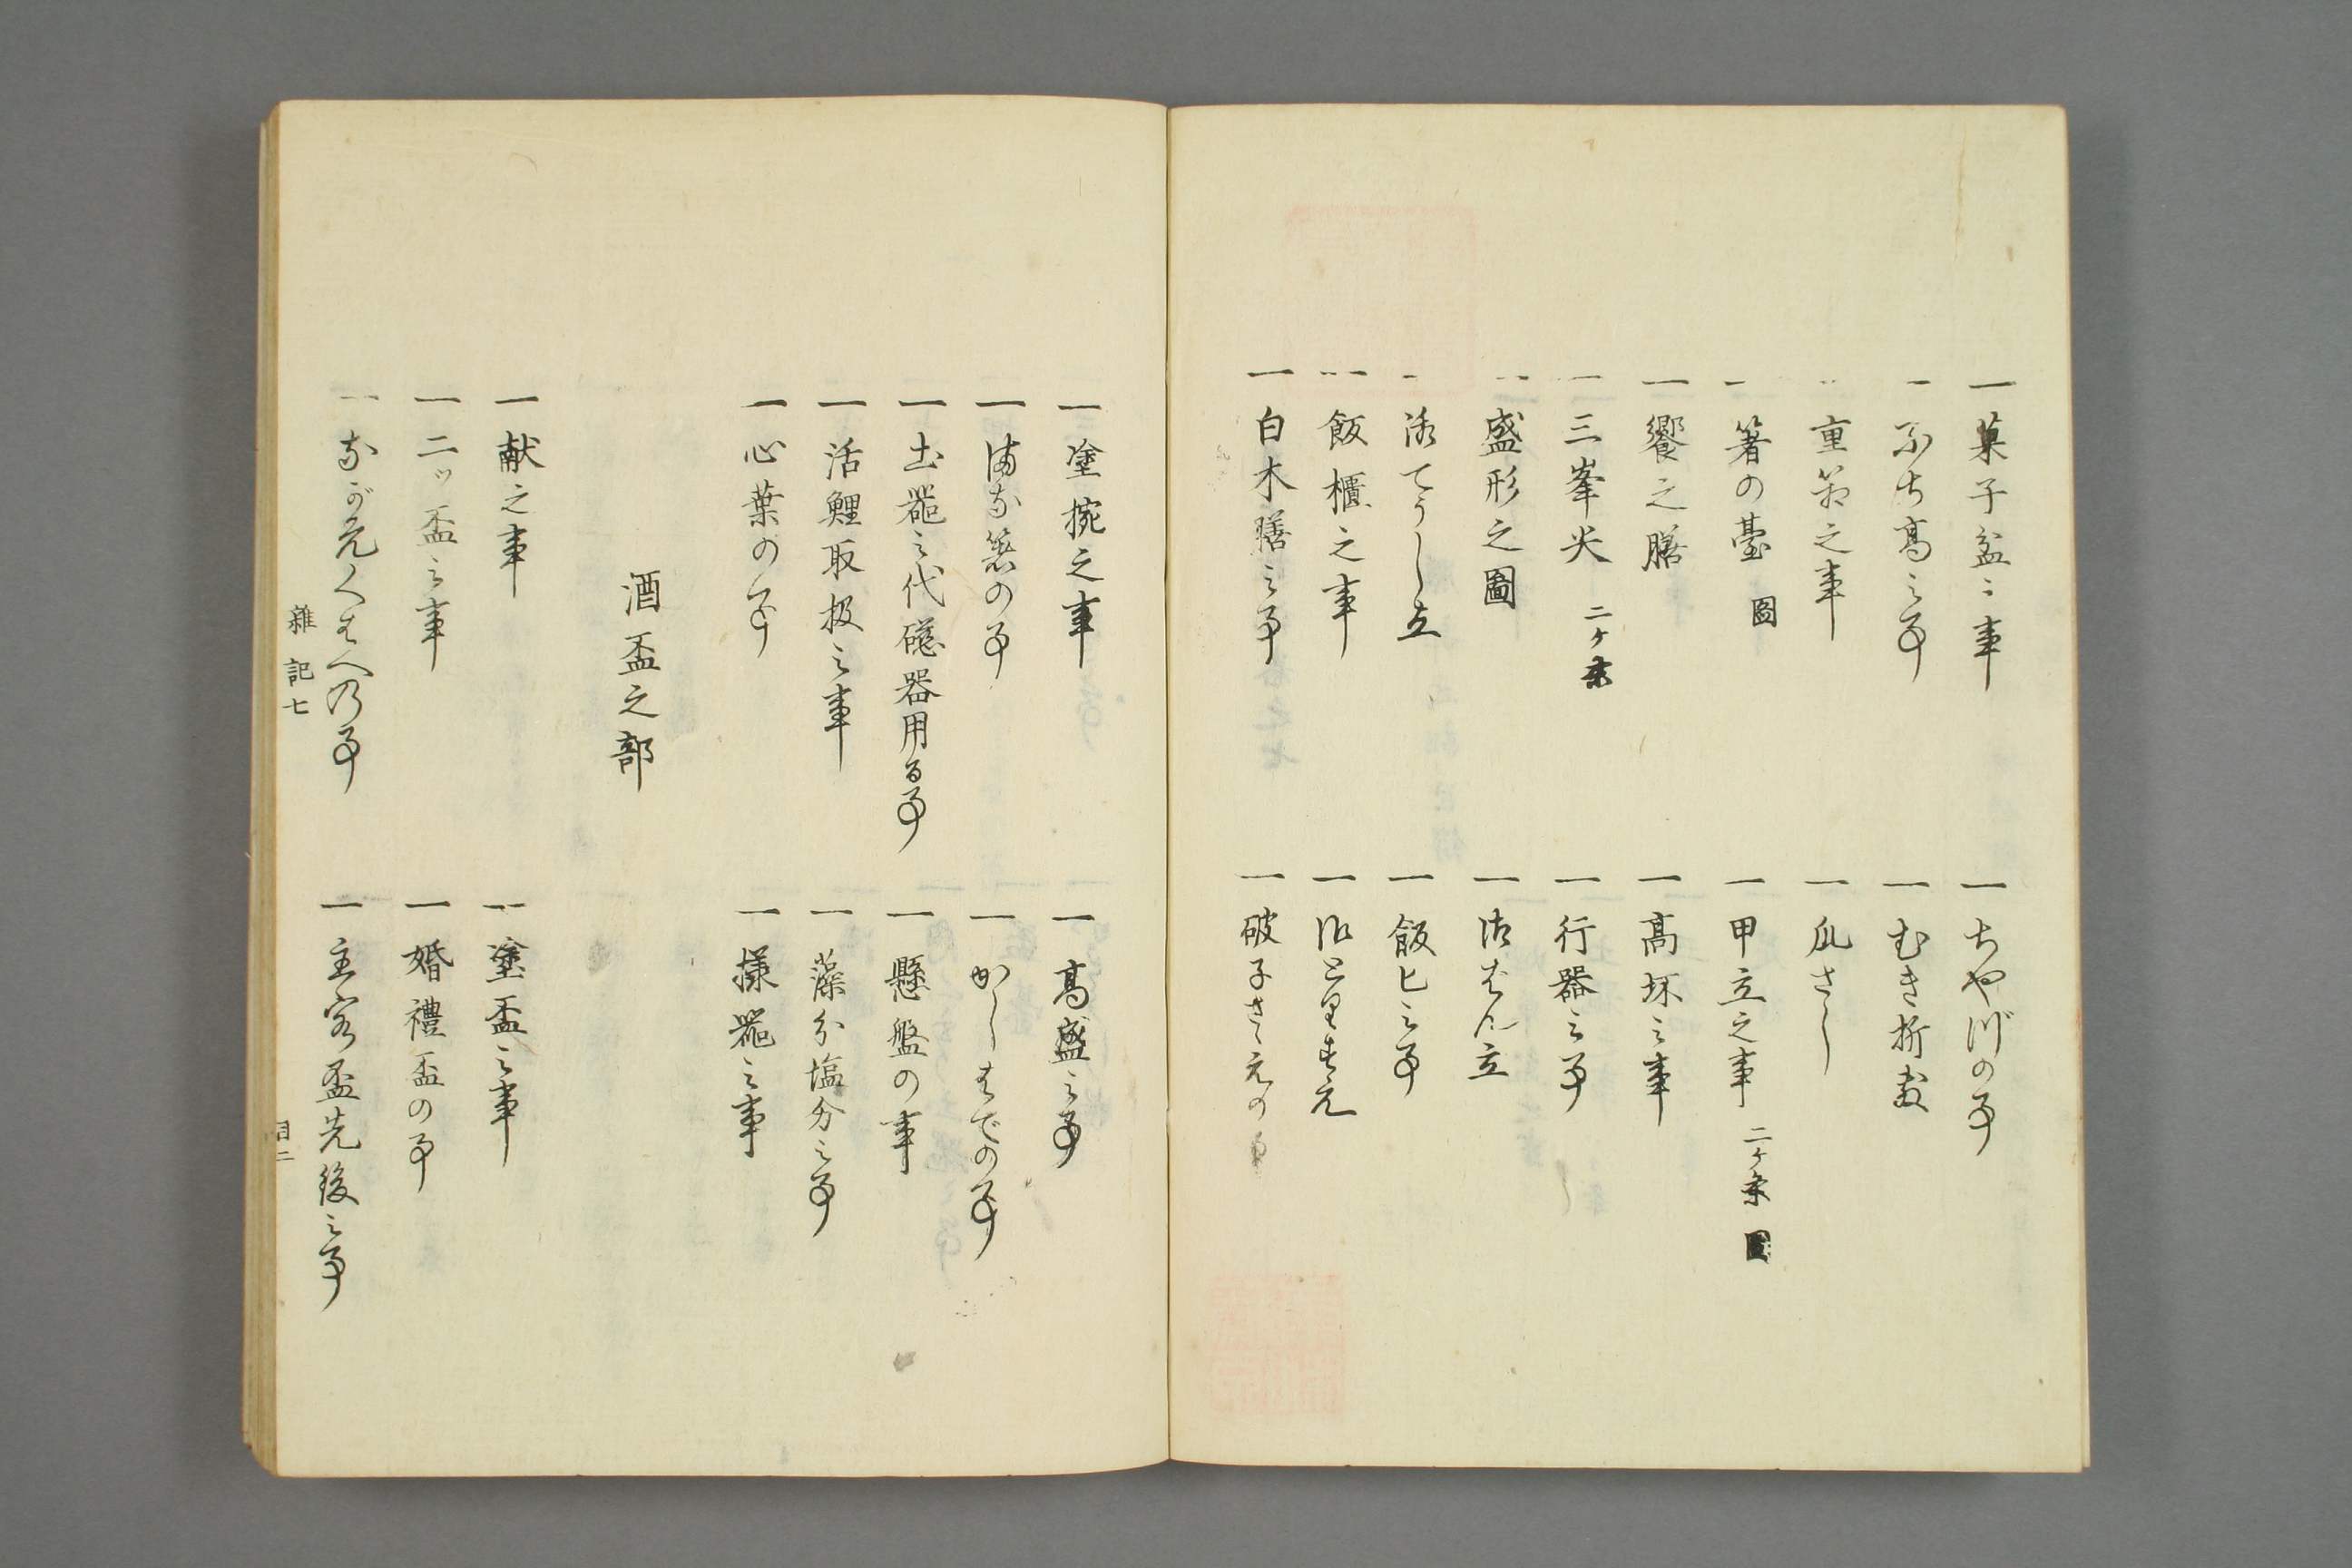 一 菓子盆之事
一 ちやつの事
一 ふち高之事
一 むき折敷
一 重箱之事
一 瓜さし
一 箸の臺 圖
一 甲立之事 二ケ条 圖
一 饗之膳
一 高坏之事
一 三峯尖 二ケ条
一 行器之事
一 盛形之圖
一 はん立
一 てうし立
一 飯匕之事
一 飯櫃之事
一 白木膳之事
一 破子さゝえの事
一 塗椀之事
一 高盛之事
一 まな箸の事
一 かしはでの事
一 土器之代磁器用る事
一 懸盤の事
一 活鯉取扱之事
一 藻分塩分之事
一 心葉の事
一 様器之事
酒盃之部
一 献之事
一 塗盃之事
一 二ツ盃之事
一 婚禮盃の事
一 ながえくはへの事
一 主客盃先後之事
雜記七
目二